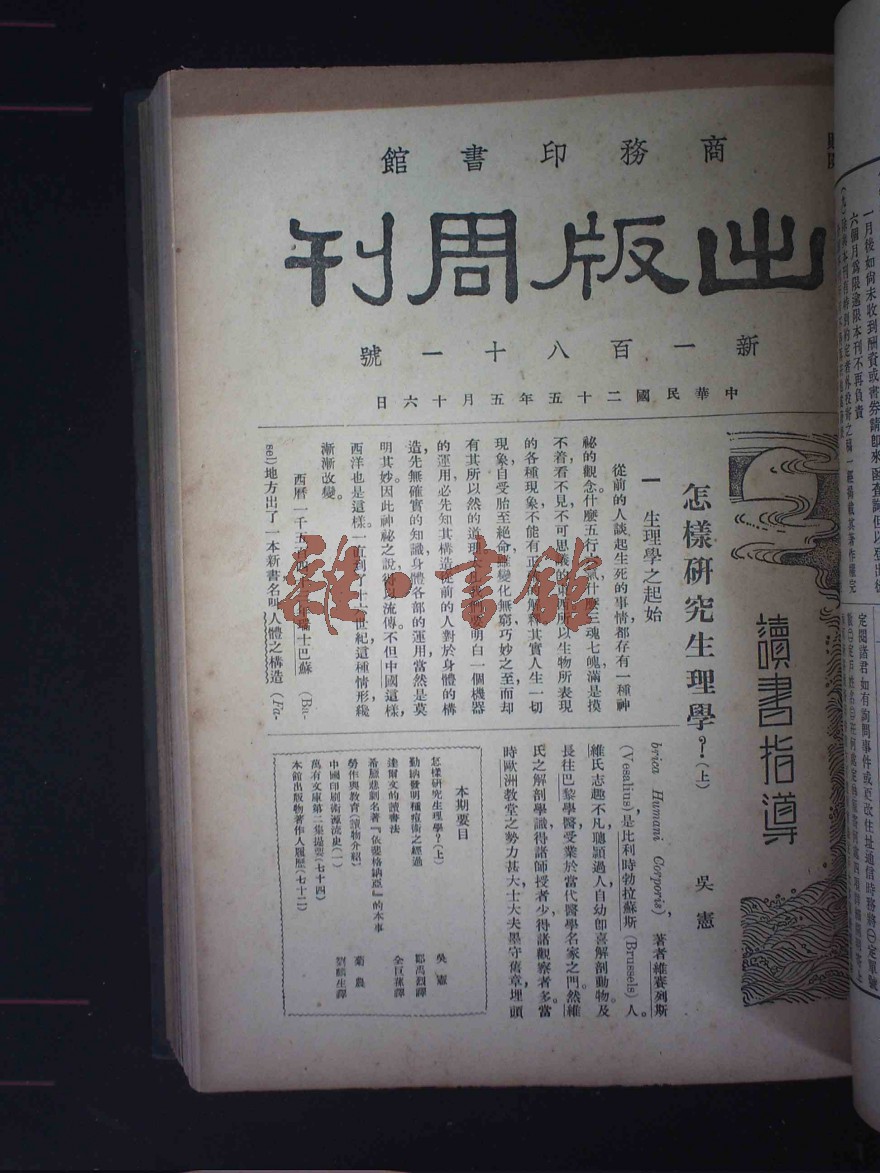 商務印書館
出版周刊
新一百八十一號
中華民國二十五年五月十六日
讀書指導
怎樣研究生理學？（上）
吳憲
一 生理學之起始
從前的人談起生死的事情，都存有一種神
祕的觀念。什麼五行
什麼三魂七魄，滿是摸
不着，看不見，不可思議的東西。所以生物所表現
的各種現象，不能有正
解釋。其實人生一切
現象，自受胎至絕命，雖變化無窮，巧妙之至，而却
有其所以然的道理。
要明白一個機器
的運用，必先知其構造。從前的人對於身體的構
造，先無確實的知識，身體各部的運用，當然是莫
明其妙。因此神祕之說，得以流傳。不但中國這樣，
西洋也是這樣。一直到了十
世紀，這種情形纔
漸漸改變。
西曆一千五百四十
瑞士巴蘇（Ba-
sel）地方出了一本新書，名叫人體之構造（Fa-
brica Humani Corporis），著者維賽列斯
（Vesalius），是比利時勃拉蘇斯（Brussels）人。
維氏志趣不凡，聰穎過人，自幼卽喜解剖動物。及
長，往巴黎學醫，受業於當代醫學名家之門。然維
氏之解剖學識，得諸師授者少，得諸觀察者多。當
時歐洲教堂之勢力甚大，士大夫墨守舊章，埋頭
本期要目
怎樣研究生理學？（上） 吳憲
勤納發明種痘術之經過
達爾文的讀書法
希臘悲劇名著『依斐格納亞』的本事
勞作與教育（讀物介紹） 菊農
中國印刷術源流史（一） 劉麟生譯
萬有文庫第二集提要（七十四）
本館出版物著作人履歷（七十二）
一月後如尙未收到酬資或書券請卽來函查詢但以登出後
六個月爲限逾限本刊不再負責
定閱諸君如有詢問事件或更改住址通信時務將㊀定單號
雜·書館